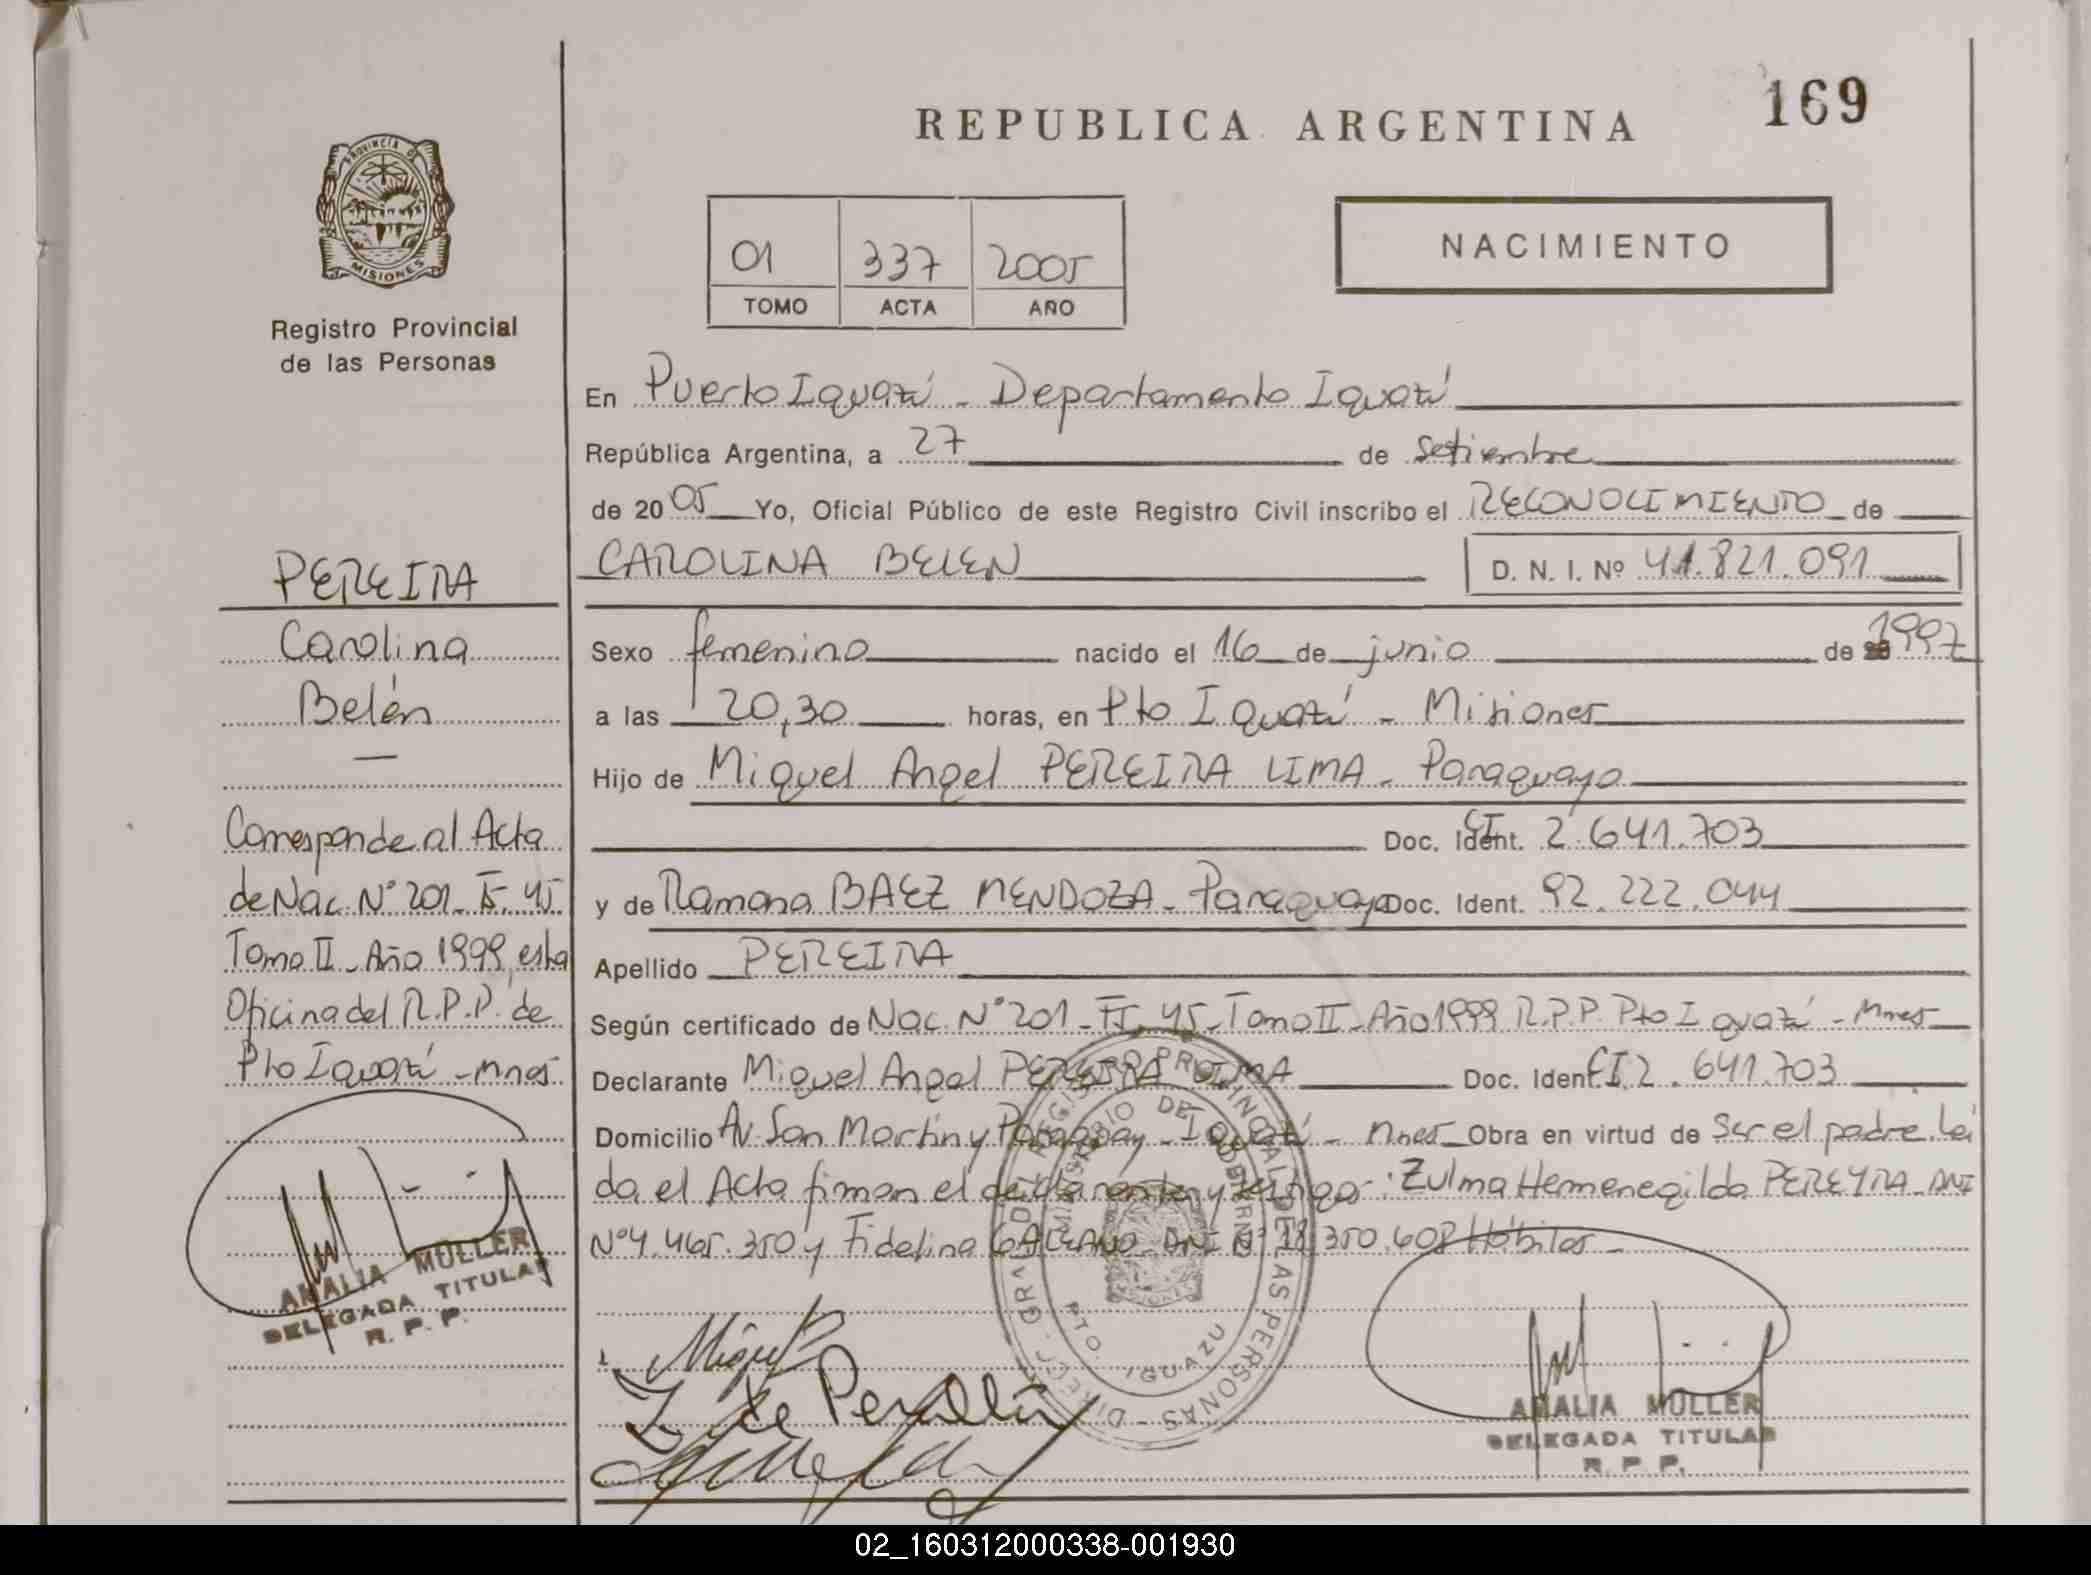 REPUBLICA ARGENTINA
169
PROVINCIA DE
MISIONES
Registro Provincial
de las Personas
01 337 2005
TOMO ACTA AÑO
NACIMIENTO
En Puerto Iguazú - Departamento Iguazú
República Argentina, a 27 de Setiembre
de 2005 Yo, Oficial Público de este Registro Civil inscribo el RECONOCIMIENTO de
CAROLINA BELEN D. N. I. Nº 41.821.091
Sexo femenino nacido el 16 de junio de 1997
a las 20,30 horas, en Pto Iguazú - Misiones
Hijo de Miguel Angel PEREIRA LIMA - Paraguayo
Doc. Ident. CI 2.641.703
y de Ramona BAEZ MENDOZA - Paraguaya Doc. Ident. 92.222.044
Apellido PEREIRA
Según certificado de Nac. Nº 201 - Fº 45 - Tomo II - Año 1999 R.P.P. Pto Iguazú - Mnes
Declarante Miguel Angel PEREIRA LIMA Doc. Ident. CI 2.641.703
Domicilio Av. San Martin y Paraguay - Iguazú - Mnes Obra en virtud de Ser el padre. Leí
da el Acta firman el declarante y testigos: Zulma Hermenegilda PEREYRA - DNI
Nº 4.465.350 y Fidelina DNI Nº 18.350.608 Hábiles -
PEREIRA
Carolina
Belén
—
Corresponde al Acta
de Nac. Nº 201 - Fº 45
Tomo II - Año 1999, esta
Oficina del R.P.P. de
Pto Iguazú - Mnes
AMALIA MULLER
DELEGADA TITULAR
R. P. P.
Miguel
Z. de Peralta
REGISTRO PROVINCIAL DE LAS PERSONAS
MINISTERIO DE GOBIERNO
PTO. IGUAZU
AMALIA MULLER
DELEGADA TITULAR
R. P. P.
02_160312000338-001930